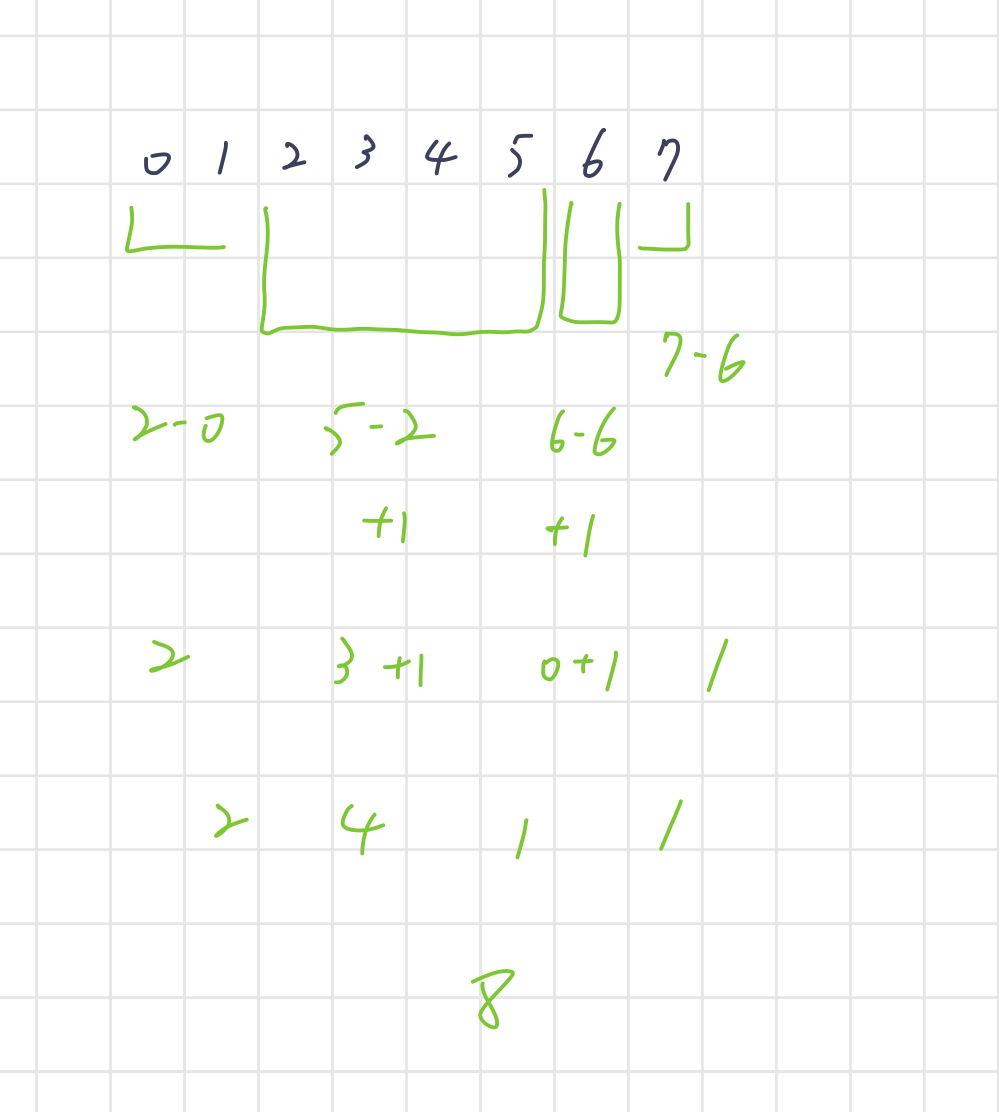 0 1 2 3 4 5 6 7
7-6
2-0 5-2 6-6
+1 +1
2 3+1 0+1 1
2 4 1 1
8